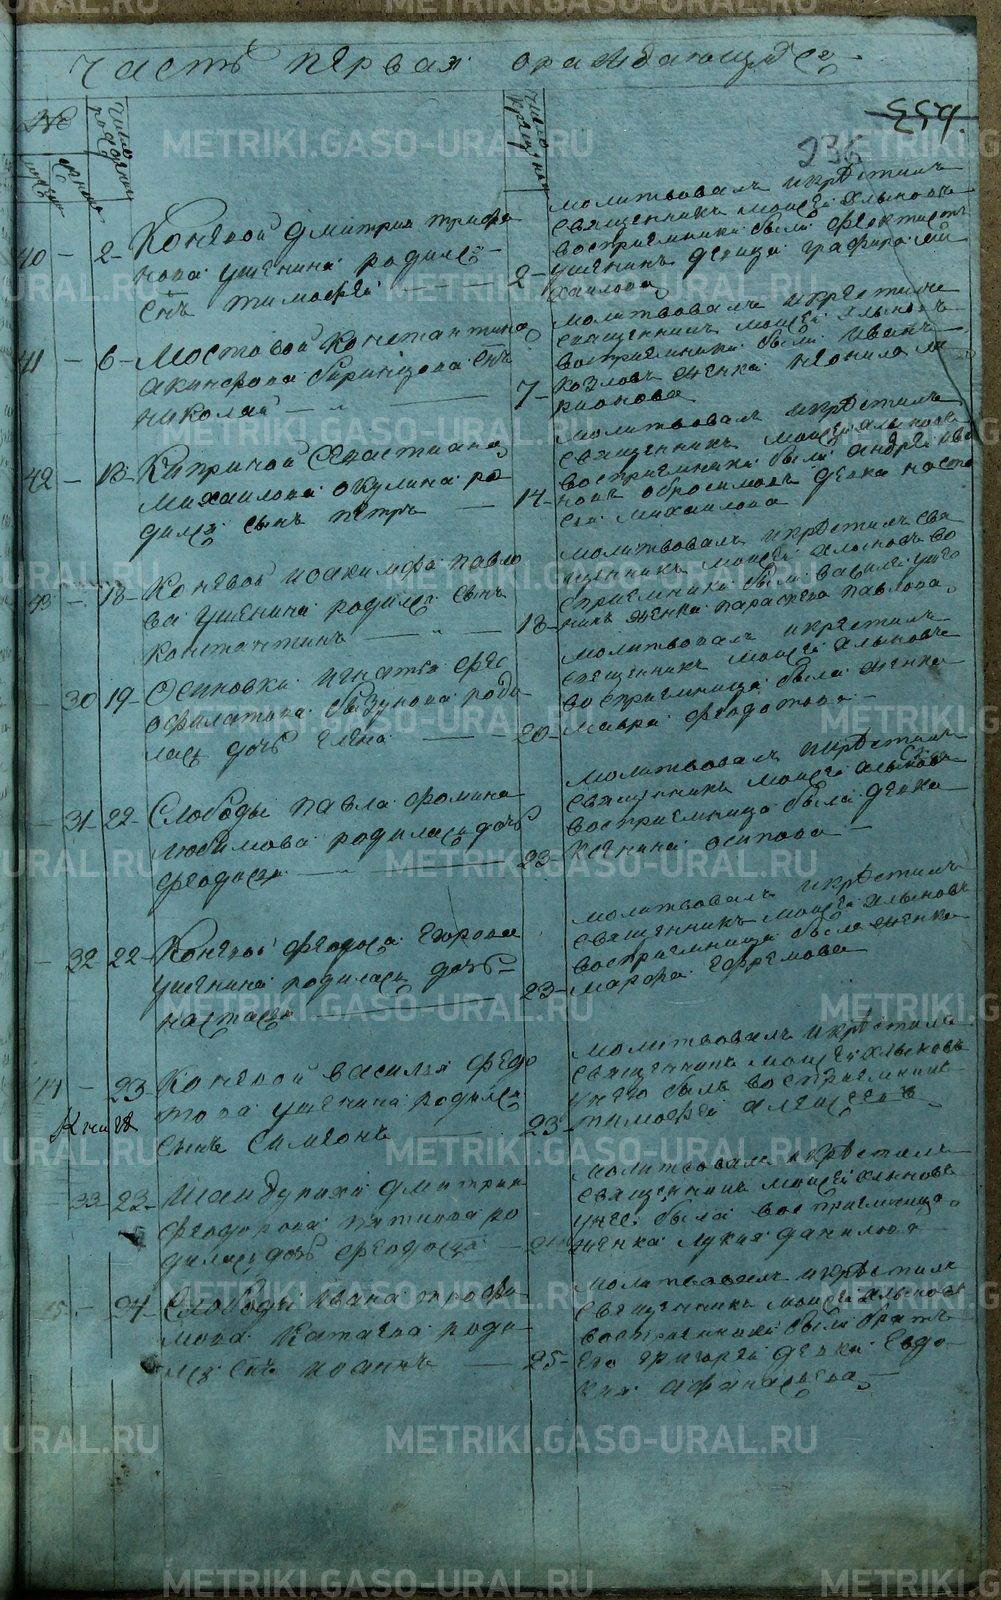 Часть первая о раждающихся
554.
236
число рождения
число крещения
мужеска
женска
40 – 2 – Коневой Дмитрия Трифо
нова Ушенина родился
снъ Тимофей
2 –
молитвовалъ и крѣстилъ
священникъ Моисей Хлыновъ
восприемники были Феоктистъ
Ушенинъ девица Глафира Ми
хаилова
41 – 6 – Мостовой Констентина
Акинфова снъ
Николай
7 –
молитвовалъ и крѣстилъ
священникъ Моисей Хлыновъ
восприемники были Иванъ
Козловъ женка Неонила Ла
рионова
42 – 13 – Киприной Севастиана
Михаилова Окулина ро
дился сынъ Петръ
14 –
молитвовалъ и крѣстилъ
священникъ Моисей Хлыновъ
восприемники были Андрей Ива
новъ Обросимовъ девка Наста
сья Михаилова
43 – 18 – Коневой Иоакимфа Павло
ва Ушенина родился сынъ
Констентинъ
18 –
молитвовалъ и крѣстилъ свя
щенникъ Моисей Хлыновъ во
сприемники были Василей Уше
нинъ женка Параскева Павлова
30 19 – Осиновки Игнатья Фео
филатова Бызунова роди
лась дочь Елена
20 –
молитвовалъ и крѣстилъ
священникъ Моисей Хлыновъ
восприемница была женка
Мавра Федотова
31 – 22 – Слободы Павла Фомина
Любимова родилась дочь
Феодосья
23 –
молитвовалъ и крѣстилъ
священникъ Моисей Хлыновъ
восприемница была девка
Ксенина Осипова
32 22 – Коневой Феодора Егорова
Ушенина родилась дочь
Настасья
23 –
молитвовалъ и крѣстилъ
священникъ Моисей Хлыновъ
восприемница была женка
Марфа Ефремова
44 – 23 Коневой Василья Федо
това Ушенина родился
сынъ Симеонъ
23 –
молитвовалъ и крѣстилъ
священникъ Моисей Хлыновъ
у него былъ восприемникъ
Тимофей Алексеевъ
33 23 – Шандурихи Дмитрия
Феодорова Пяткова ро
дилась дочь Феодосья
молитвовалъ и крѣстилъ
священникъ Моисей Хлыновъ
у неё была восприемница
женка Лукия Данилова
45 – 24 Слободы Ивана Трофи
мова Катаева роди
лся снъ Иоаннъ
25 –
молитвовалъ и крѣстилъ
священникъ Моисей Хлыновъ
восприемники были братъ
его Григорей девка Евдо
кия Афанасьева
METRIKI.GASO-URAL.RU